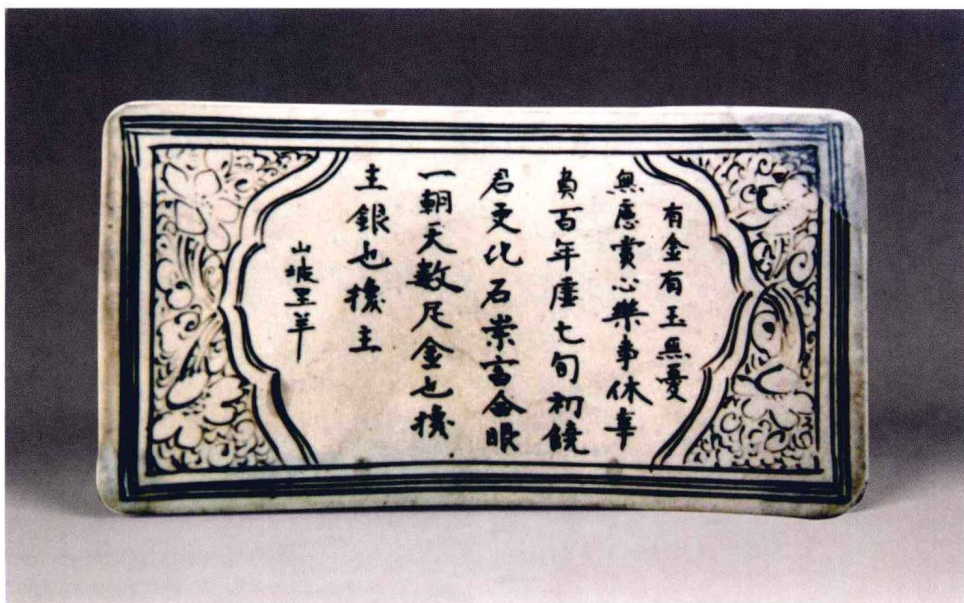 有金有玉無憂
無慮賞心樂事休辜
負百年虛七旬初饒
君更比石崇富合眼
一朝天數足金也換
主銀也換主
山坡里羊